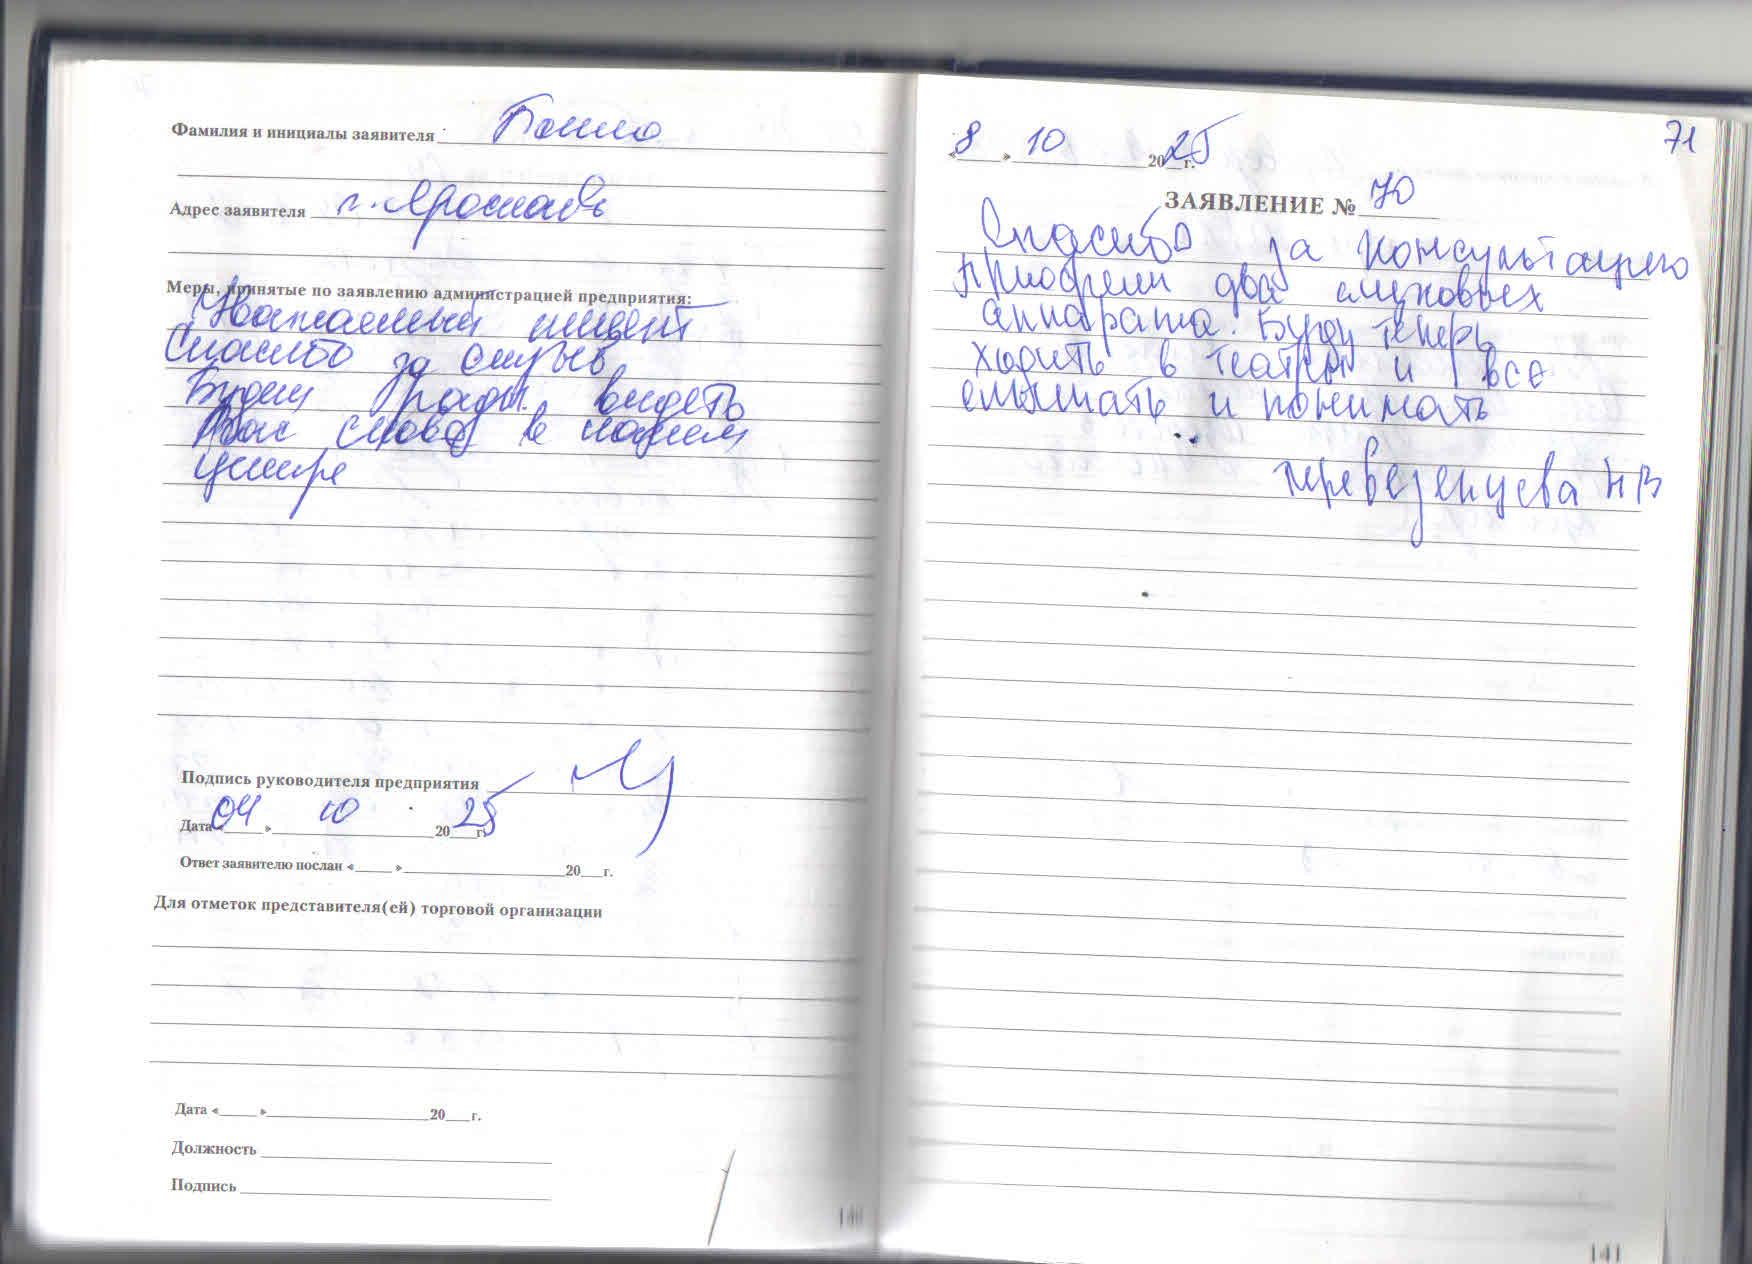 Фамилия и инициалы заявителя
Адрес заявителя г. Ярославль
Меры, принятые по заявлению администрацией предприятия:
Уважаемый клиент
Спасибо за отзыв
Будем рады видеть
Вас снова в нашем
центре
Подпись руководителя предприятия
Дата «04» 10 2025 г.
Ответ заявителю послан «___» ___ 20___г.
Для отметок представителя(ей) торговой организации
Дата «___» ___ 20___г.
Должность
Подпись
140
71
«8» 10 2025 г.
ЗАЯВЛЕНИЕ № 70
Спасибо за консультацию
приобрели два слуховых
аппарата. Буду теперь
ходить в театры и все
слышать и понимать
Перевезенцева Н В
141